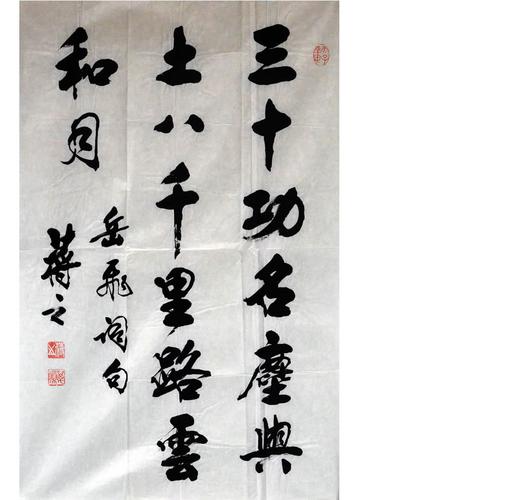 三十功名塵與
土八千里路雲
和月
岳飛词句
蒋之